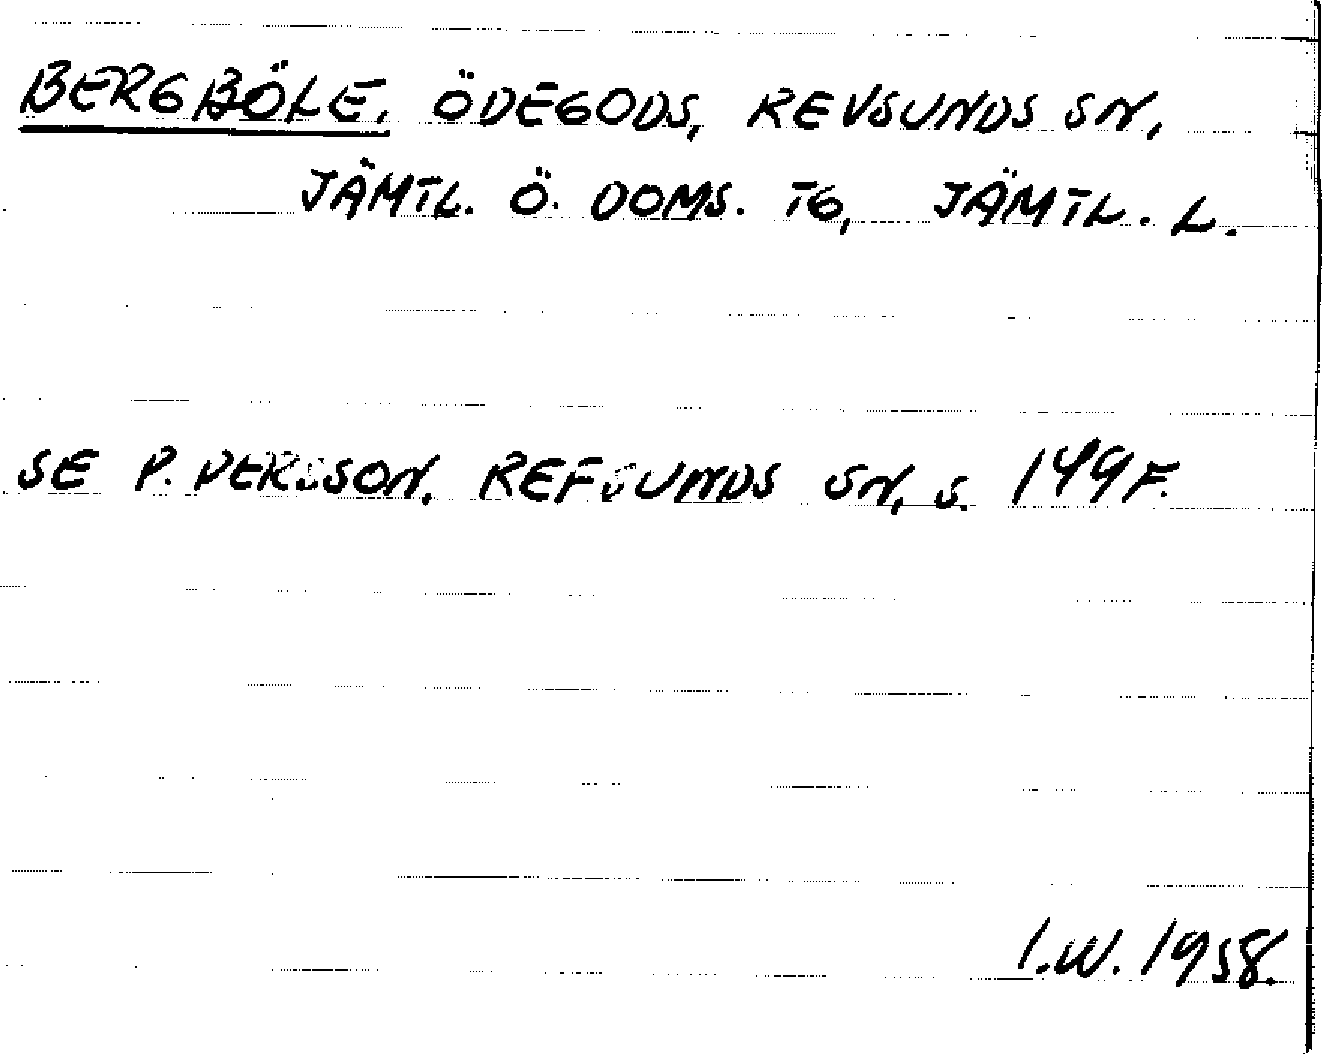 BERGBÖLE, ÖDEGODS, REVSUNDS SN,
JÄMTL. Ö. DOMS. TG, JÄMTL. L.
SE P. PERSSON, REFSUNDS SN, S. 149 F.
I.W. 1958.